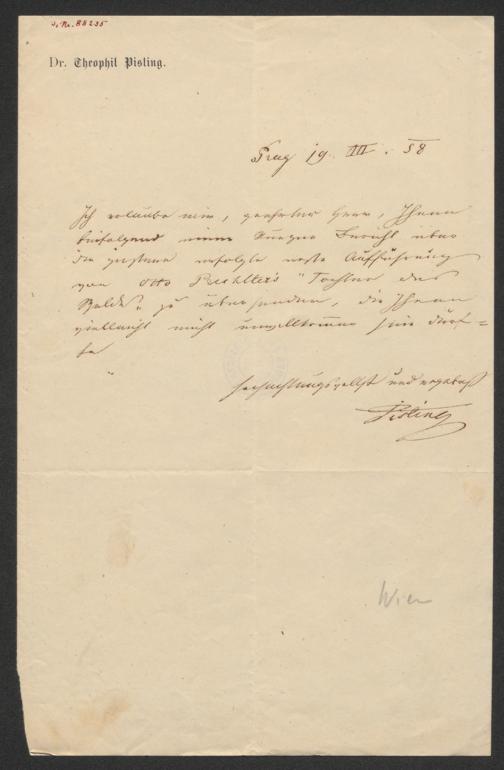 J. Nr. 88235
Dr. Theophil Pisling.
Prag 19. III. 58
Ich erlaube mir, geehrter Herr, Ihnen
beifolgend einen kurzen Bericht über
die gestern erfolgte erste Aufführung
von Otto Prechtler's "Tochter des
Waldes" zu übersenden, die Ihnen
vielleicht nicht unwillkommen sein dürf=
te
hochachtungsvollst und ergebenst
Pisling
Wien